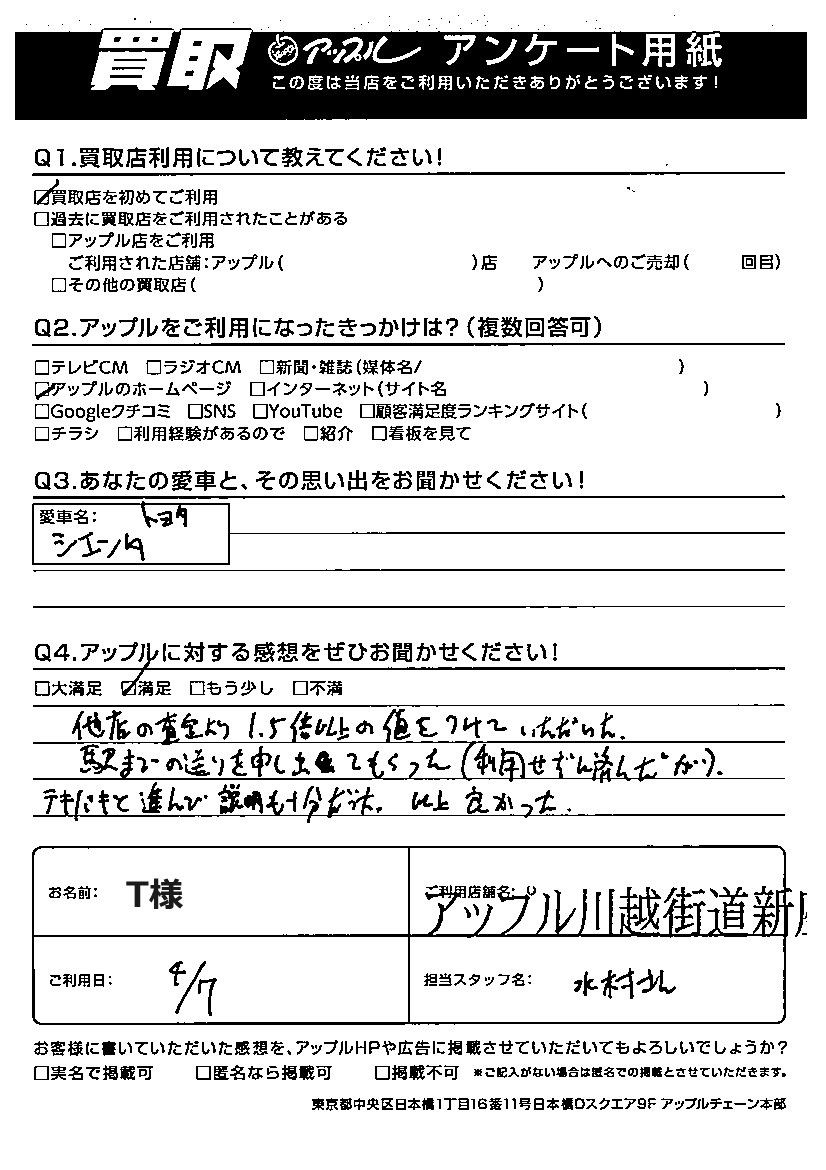 買取 アップル アンケート用紙
この度は当店をご利用いただきありがとうございます!
Q1.買取店利用について教えてください!
☑買取店を初めてご利用
□過去に買取店をご利用されたことがある
□アップル店をご利用
ご利用された店舗:アップル( )店 アップルへのご売却( 回目)
□その他の買取店( )
Q2.アップルをご利用になったきっかけは?(複数回答可)
□テレビCM □ラジオCM □新聞・雑誌(媒体名/ )
☑アップルのホームページ □インターネット(サイト名 )
□Googleクチコミ □SNS □YouTube □顧客満足度ランキングサイト( )
□チラシ □利用経験があるので □紹介 □看板を見て
Q3.あなたの愛車と、その思い出をお聞かせください!
愛車名: トヨタ
シエンタ
Q4.アップルに対する感想をぜひお聞かせください!
□大満足 ☑満足 □もう少し □不満
他店の査定より 1.5倍以上の値をつけていただいた。
駅までの送りを申し出てもらった(利用せずに済んだが)。
テキパキと進んで 説明も十分だった。 以上 良かった。
お名前: T様
ご利用店舗名:
アップル川越街道新座
ご利用日: 4/7
担当スタッフ名: 水村さん
お客様に書いていただいた感想を、アップルHPや広告に掲載させていただいてもよろしいでしょうか?
□実名で掲載可 □匿名なら掲載可 □掲載不可 ※ご記入がない場合は匿名での掲載とさせていただきます。
東京都中央区日本橋1丁目16番11号日本橋Dスクエア9F アップルチェーン本部